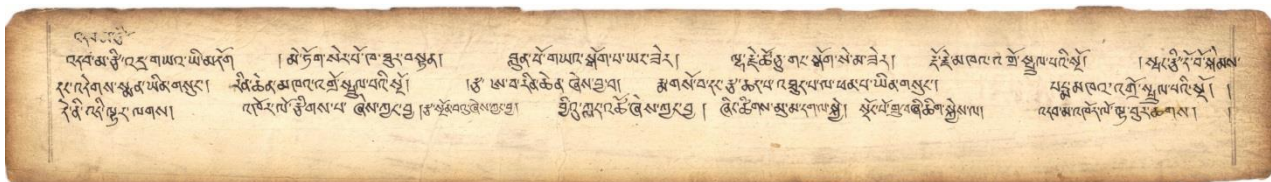 འདབ་མ་རྩི་
འདབ་མ་རྩི་འདྲ་གཡའ་ཡི་མདོག །མེ་ཏོག་སེར་པོ་ཁ་ཐུར་བསྟན། བྱུན་པོ་གཡའ་སྒོག་པ་ཡང་ཟེར། ལྷ་རྗེ་ཚོ་རུ་གང་སྒོག་སེ་མ་ཟེར། རྡོ་རྗེ་མཁའ་འགྲོ་སྤྲུལ་པའི་སྔོ། །སྤང་རྩི་དོ་བོ་སྙོམས་
དང་འདེགས་སྨན་ཡིན་གསུང་། རིན་ཆེན་མཁའ་འགྲོ་སྤྲུལ་པའི་སྔོ། །རྩ་ཨ་བ་རིན་ཆེན་ཞེས་བྱ་བ། རྨ་གསོ་བ་དང་རྩ་ཆད་པ་འཐུད་པ་ལ་ཕན་པ་ཡིན་གསུང་། པདྨ་མཁའ་འགྲོ་སྤྲུལ་པའི་སྔོ། །
དེ་ནི་འདི་ལྟར་ལགས། འཁོར་ལོ་རྩིགས་པ་ཞེས་ཀྱང་བྱ །རྩ་སྔོན་བུ་ཞེས་ཀྱང་བྱ། བྱི་ཏུ་ཀླད་འཚོ་ཞེས་ཀྱང་བྱ། ཞིང་ཚིགས་མུ་མ་དག་ལ་སྐྱེ། སྡོང་པོ་གྲུ་བཞི་ཚིག་སྐྱེས་ལ། འདབ་མ་འཁོར་ལོ་ལྟ་བུར་ཆགས། །